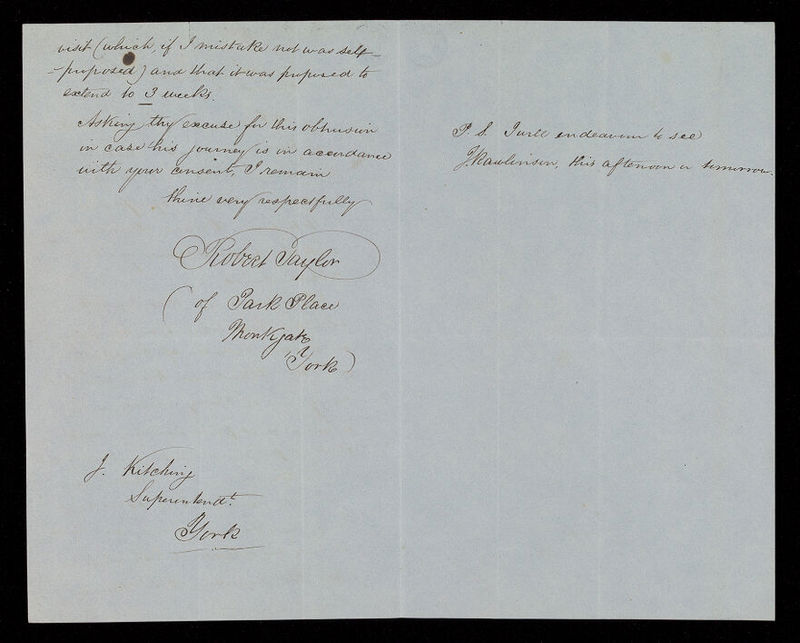 visit (which, if I mistake not was self-
-proposed) and that it was proposed to
extend to 3 weeks.
Asking thy excuse for this obtrusion
in case his journey is in accordance
with your consent, I remain
thine very respectfully
Robert Taylor
(of Park Place
Monkgate
York)
J. Kitching
Superintendt.
York
P.S. I will endeavour to see
J Rawlinson, this afternoon or tomorrow.